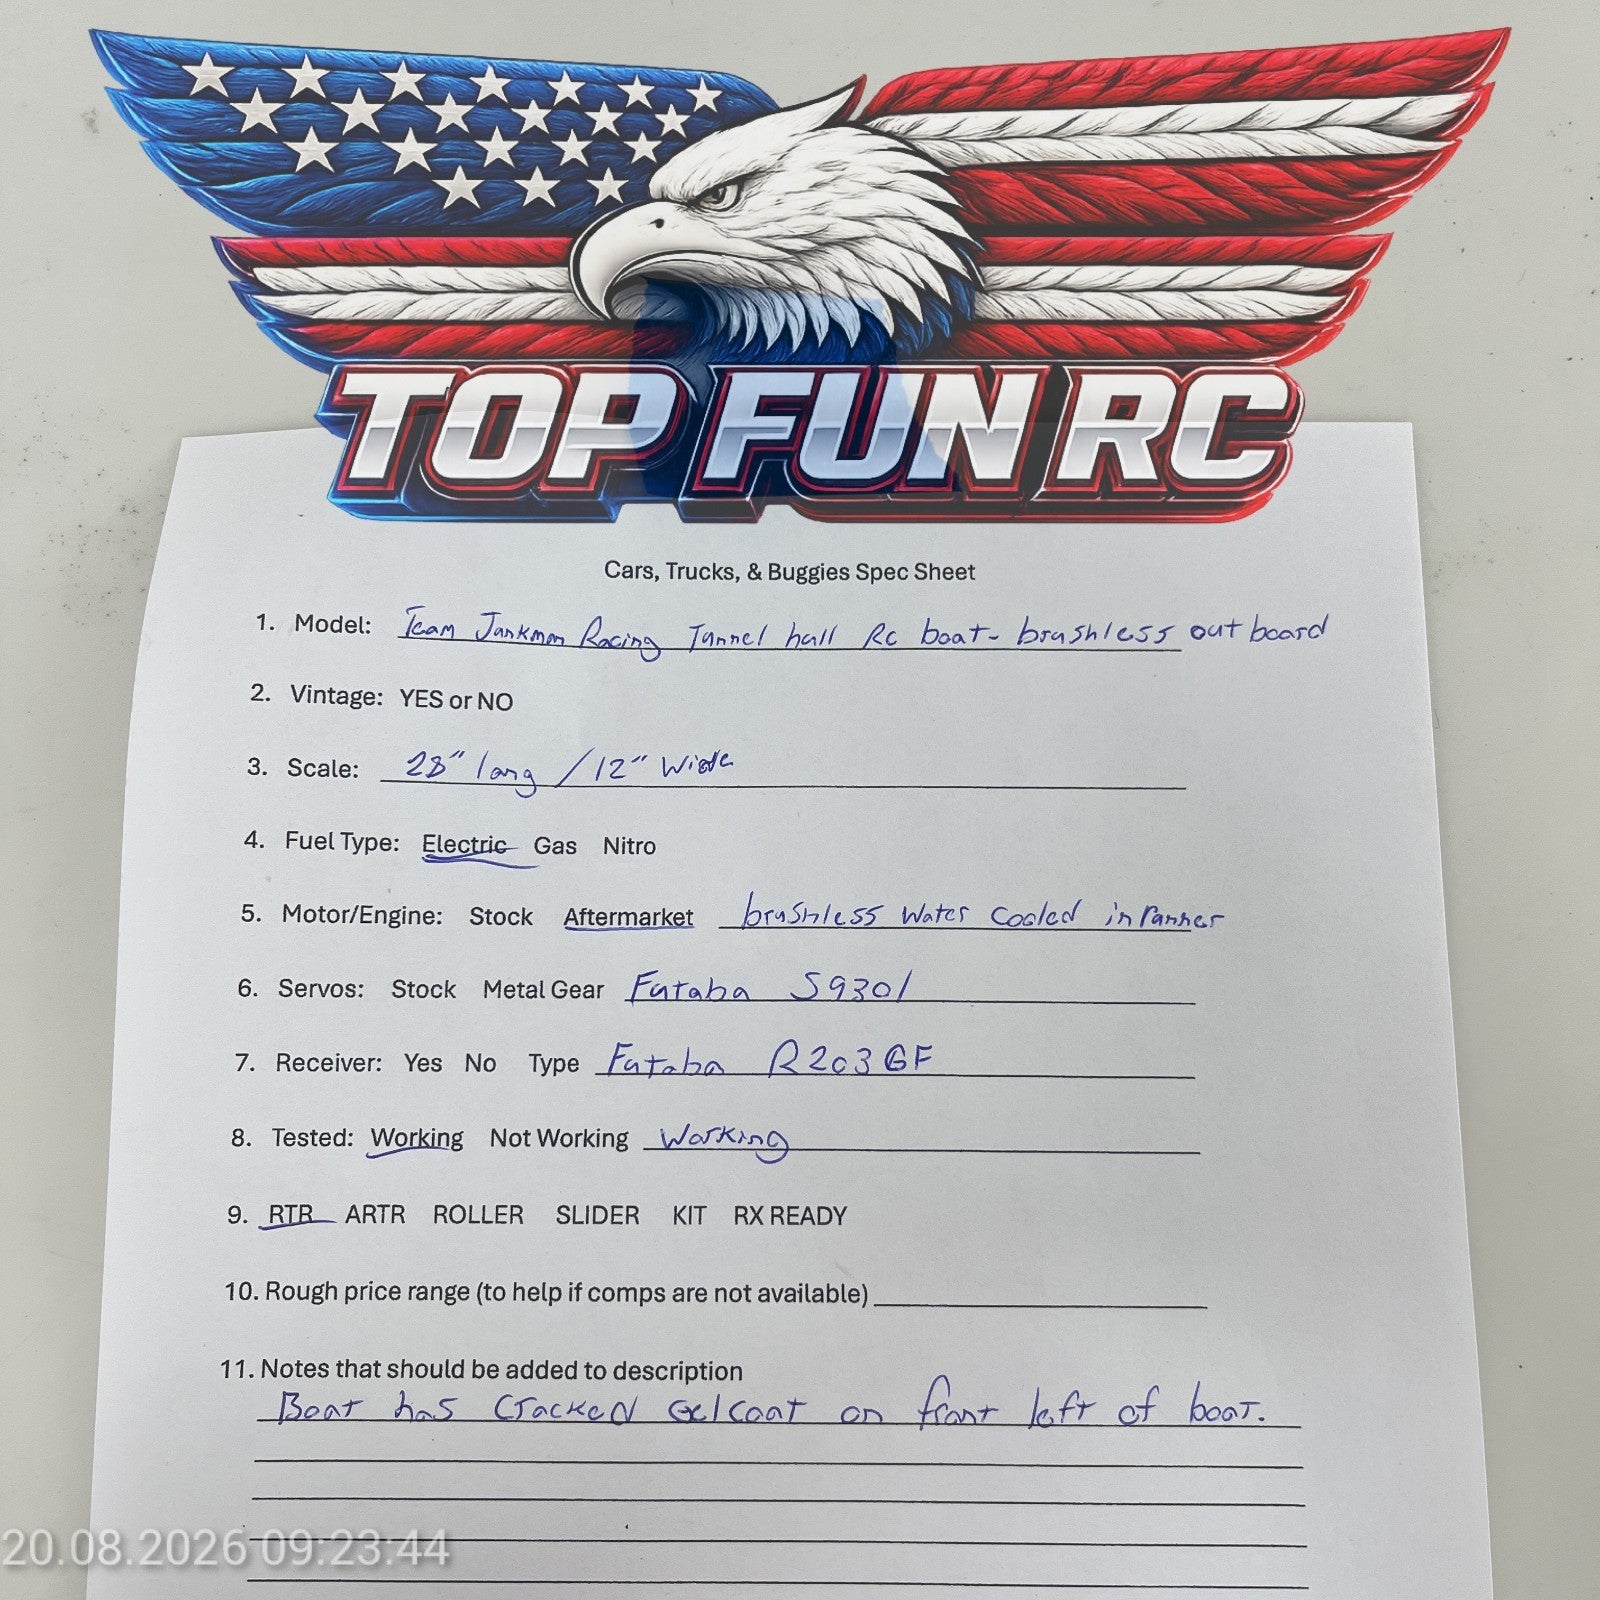 TOP FUN RC
Cars, Trucks, & Buggies Spec Sheet
1. Model: Team Junkman Racing Tunnel hull Rc boat- brushless outboard
2. Vintage: YES or NO
3. Scale: 28" long / 12" Wide
4. Fuel Type: Electric Gas Nitro
5. Motor/Engine: Stock Aftermarket brushless Water Cooled inrunner
6. Servos: Stock Metal Gear Futaba S9301
7. Receiver: Yes No Type Futaba R203GF
8. Tested: Working Not Working Working
9. RTR ARTR ROLLER SLIDER KIT RX READY
10. Rough price range (to help if comps are not available)
11. Notes that should be added to description
Boat has Cracked Gelcoat on front left of boat.
20.08.2026 09:23:44